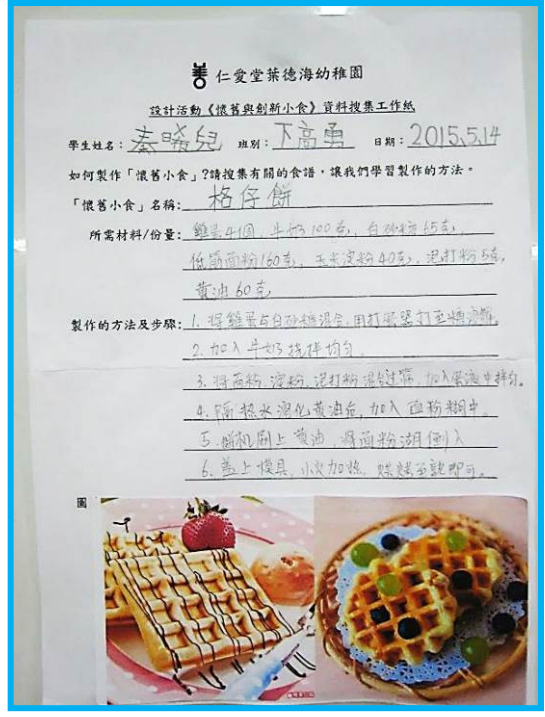 仁愛堂葉德海幼稚園
設計活動《懷舊與創新小食》資料搜集工作紙
學生姓名：秦晞兒 班別：下高勇 日期：2015.5.14
如何製作「懷舊小食」?請搜集有關的食譜，讓我們學習製作的方法。
「懷舊小食」名稱: 格仔餅
所需材料/份量: 雞蛋4個，牛奶100克，白砂糖65克，
低筋面粉160克，玉米淀粉40克，泡打粉5克，
黃油60克
製作的方法及步驟: 1. 将雞蛋与白砂糖混合，用打蛋器打至糖溶解。
2. 加入牛奶搅拌均匀。
3. 将面粉、淀粉、泡打粉混合过筛，加入蛋液中拌匀。
4. 隔热水溶化黄油后，加入面粉糊中。
5. 餅机刷上黄油，将面粉湖倒入
6. 盖上模具，小火加热，烘烤至熟即可。
圖